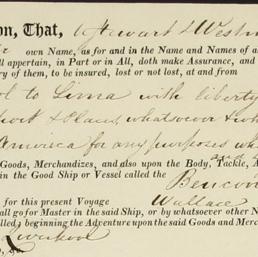 on, That, Stewart & Westm
own Name, as for and in the Name and Names of a
ll appertain, in Part or in All, doth make Assurance, and
ry of them, to be insured, lost or not lost, at and from
ol to Lima with liberty
port & places whatsoever & wh
America for any purposes wh
Goods, Merchandizes, and also upon the Body, Tackle, A
in the Good Ship or Vessel called the
for this present Voyage Wallace
all go for Master in the said Ship, or by whatsoever other N
lled; beginning the Adventure upon the said Goods and Merc
Liverpool